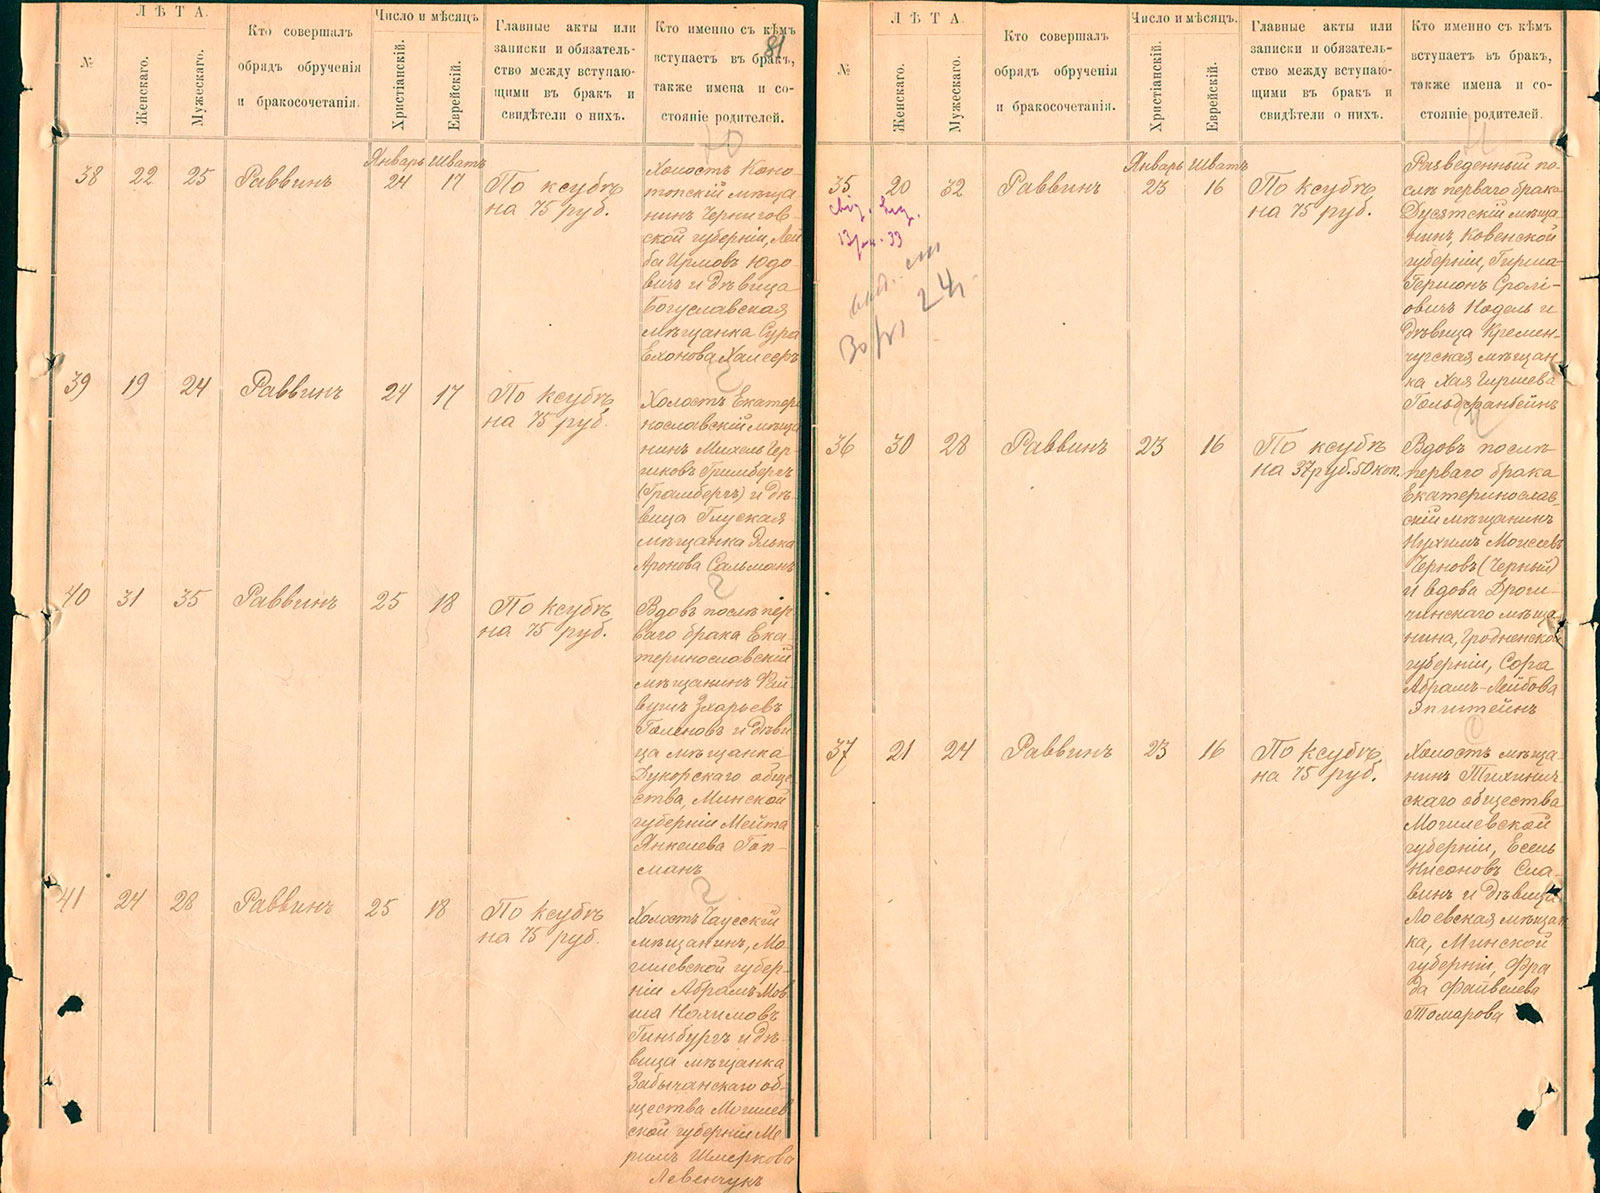 ЛѢТА.
Число и мѣсяцъ
№
Женскаго.
Мужескаго.
Кто совершалъ
обрядъ обрученія
и бракосочетанія.
Христіанскій.
Еврейскій.
Главные акты или
записки и обязатель-
ство между вступаю-
щими въ бракъ и
свидѣтели о нихъ.
Кто именно съ кѣмъ
вступаетъ въ бракъ,
также имена и со-
стояніе родителей.
81
Январь Шватъ
38 22 25 Раввинъ 24 17
По ксубѣ
на 75 руб.
Холостъ Коно-
топскій мѣща
нинъ Чернигов-
ской губерніи, Лей
ба Ирмовъ Юдо-
вичъ и дѣвица
Богуславская
мѣщанка Сура
Ехонова Хамееръ
39 19 24 Раввинъ 24 17
По ксубѣ
на 75 руб.
Холостъ Екатери
нославскій мѣща
нинъ Михель Гер-
шковъ Гримбергъ
(Грамбергъ) и дѣ-
вица Глуская
мѣщанка Элька
Аронова Сальманъ
40 31 35 Раввинъ 25 18
По ксубѣ
на 75 руб.
Вдовъ послѣ пер
ваго брака Ека-
теринославскій
мѣщанинъ Фай-
вушъ Зхарьевъ
Голеновъ и дѣви
ца мѣщанка
Дукорскаго обще
ства, Минской
губерніи Мейта
Янкелева Гоп-
манъ
41 24 28 Раввинъ 25 18
По ксубѣ
на 75 руб.
Холостъ Чаусскій
мѣщанинъ, Мо-
гилевской губер-
ніи Абрамъ Мов
ша Нохимовъ
Гинзбургъ и дѣ-
вица мѣщанка
Забычанскаго об-
щества Могилев
ской губерніи Ме-
римъ Шмеркова
Левенчукъ
ЛѢТА.
Число и мѣсяцъ.
№
Женскаго.
Мужескаго.
Кто совершалъ
обрядъ обрученія
и бракосочетанія.
Христіанскій.
Еврейскій.
Главные акты или
записки и обязатель-
ство между вступаю-
щими въ бракъ и
свидѣтели о нихъ.
Кто именно съ кѣмъ
вступаетъ въ бракъ,
также имена и со-
стояніе родителей.
Январь Шватъ
35 20 32 Раввинъ 23 16
По ксубѣ
на 75 руб.
Разведенный по-
слѣ перваго брака
Дусятскій мѣща-
нинъ, Ковенской
губерніи, Гирша-
Гершонъ Сролі-
овичъ Нодель и
дѣвица Кремен-
чугская мѣщан-
ка Хая Гиршева
Гольдфанбейнъ
36 30 28 Раввинъ 23 16
По ксубѣ
на 37 руб. 50 коп.
Вдовъ послѣ
перваго брака
Екатеринослав
скій мѣщанинъ
Нухимъ Моисеевъ
Черновъ (Черный)
и вдова Дроги-
чинскаго мѣща-
нина, Гродненской
губерніи, Сора
Абрамъ-Лейбова
Эпштейнъ
37 21 24 Раввинъ 23 16
По ксубѣ
на 75 руб.
Холостъ мѣща-
нинъ Тихинич
скаго общества
Могилевской
губерніи, Есель
Нисоновъ Сла-
винъ и дѣвица
Лоевская мѣщан-
ка, Минской
губерніи, Фра
да Файвелева
Томарова